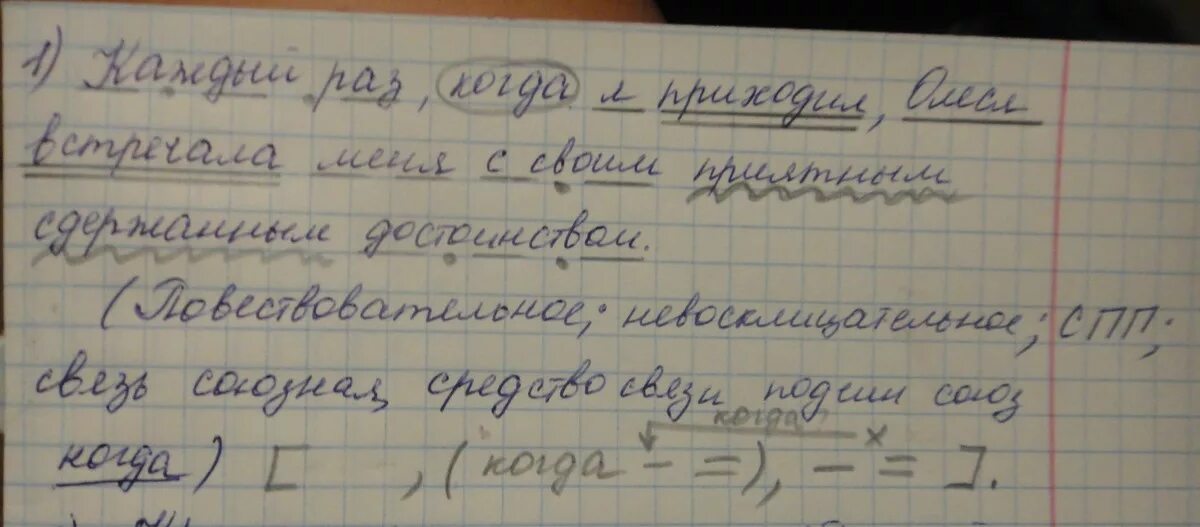 1) Каждый раз, когда я приходил, Олеся
встречала меня с своим приятным
сдержанным достоинством.
(Повествовательное; невосклицательное; СПП;
связь союзная, средство связи подчин союз
когда
когда) [ , (когда - =), - = ].